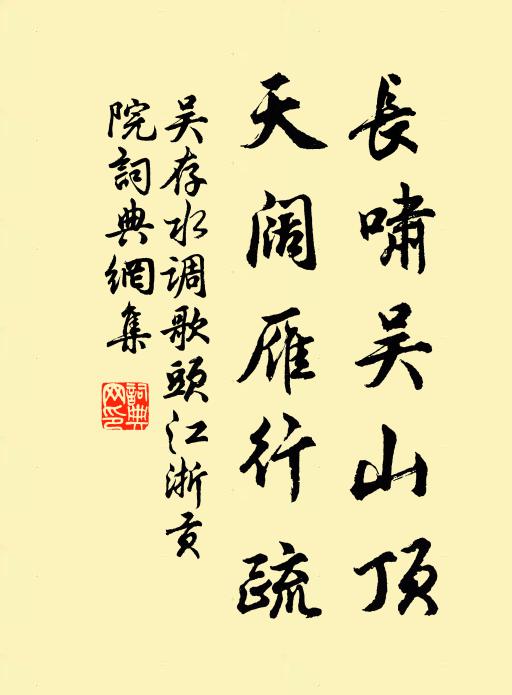 長嘯吴山頂
天阔雁行疏
吴存水调歌頭江浙贡
院詞典網集
詞典網印